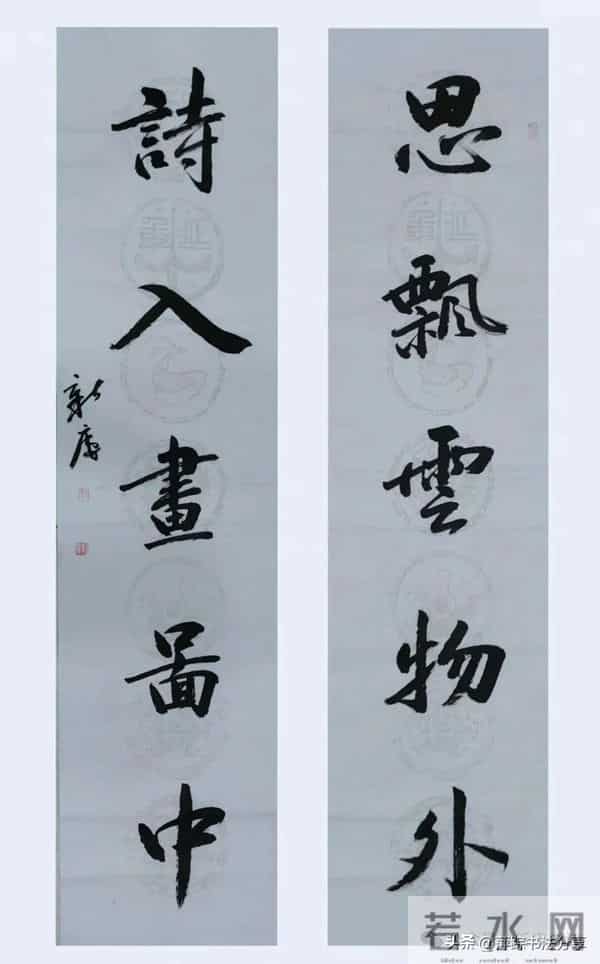 思飄雲物外
詩入畫圖中
新康
若水网
头条@薛综书法分享